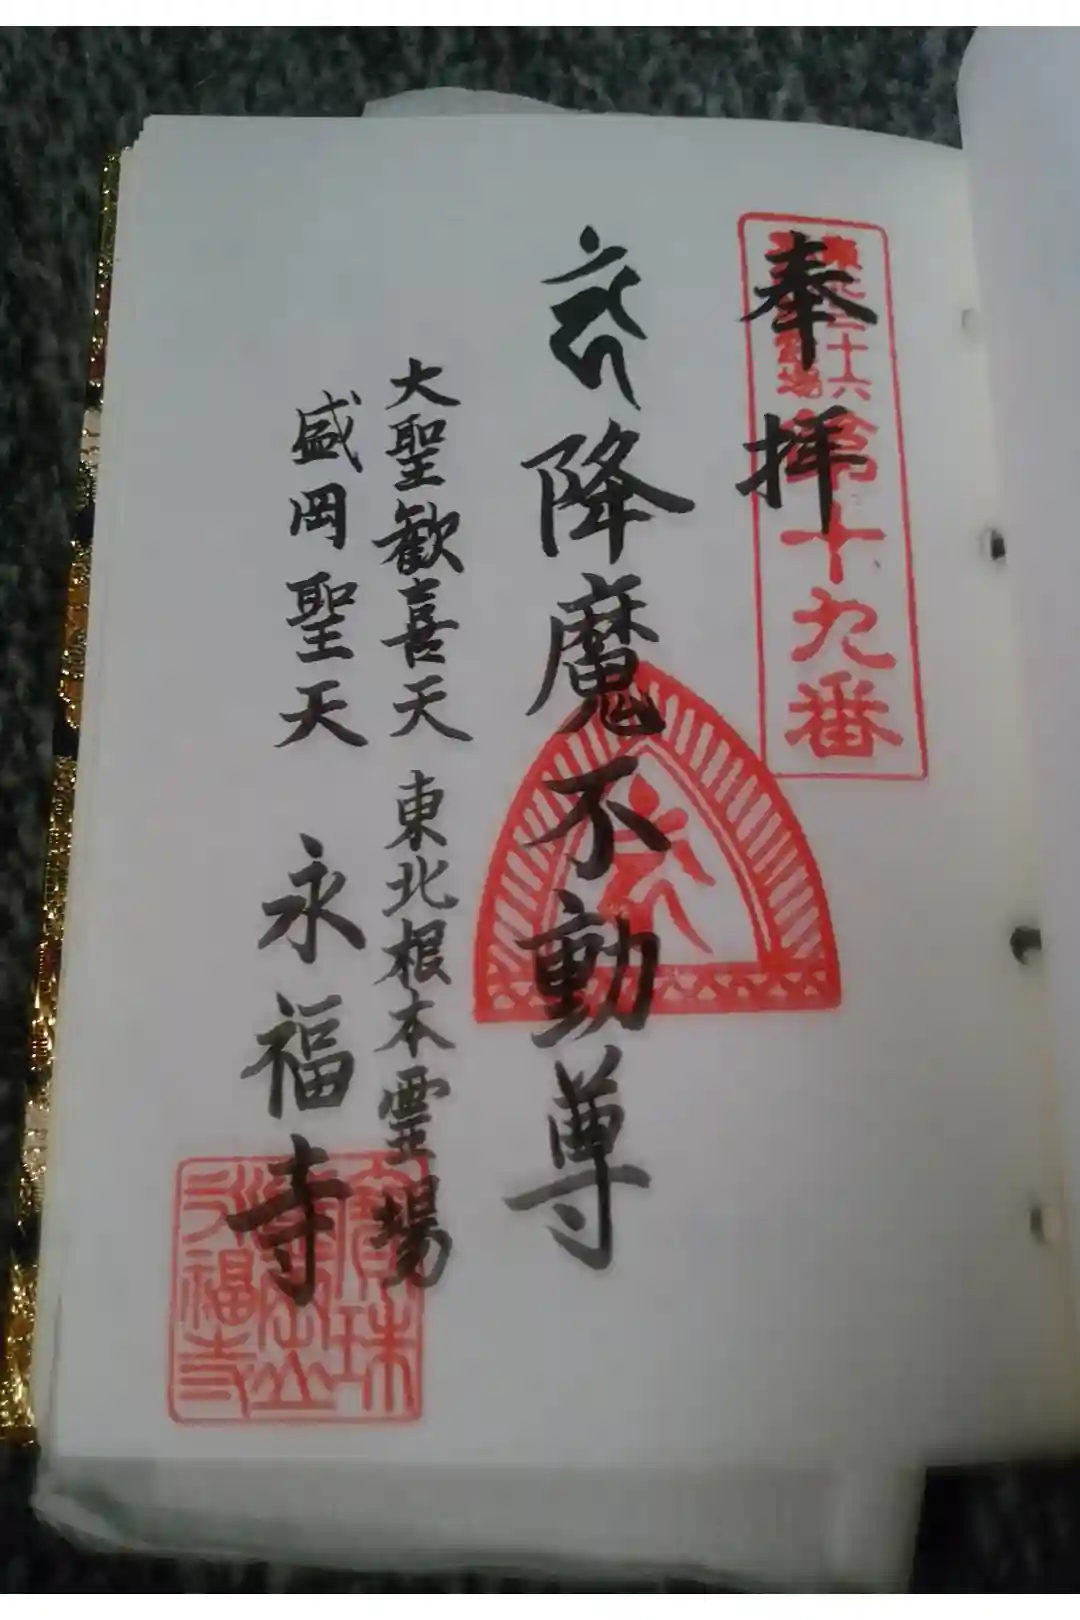 奉拝
東北三十六
霊場
第十九番
降魔不動尊
大聖歓喜天 東北根本霊場
盛岡聖天 永福寺
寶珠
永福寺